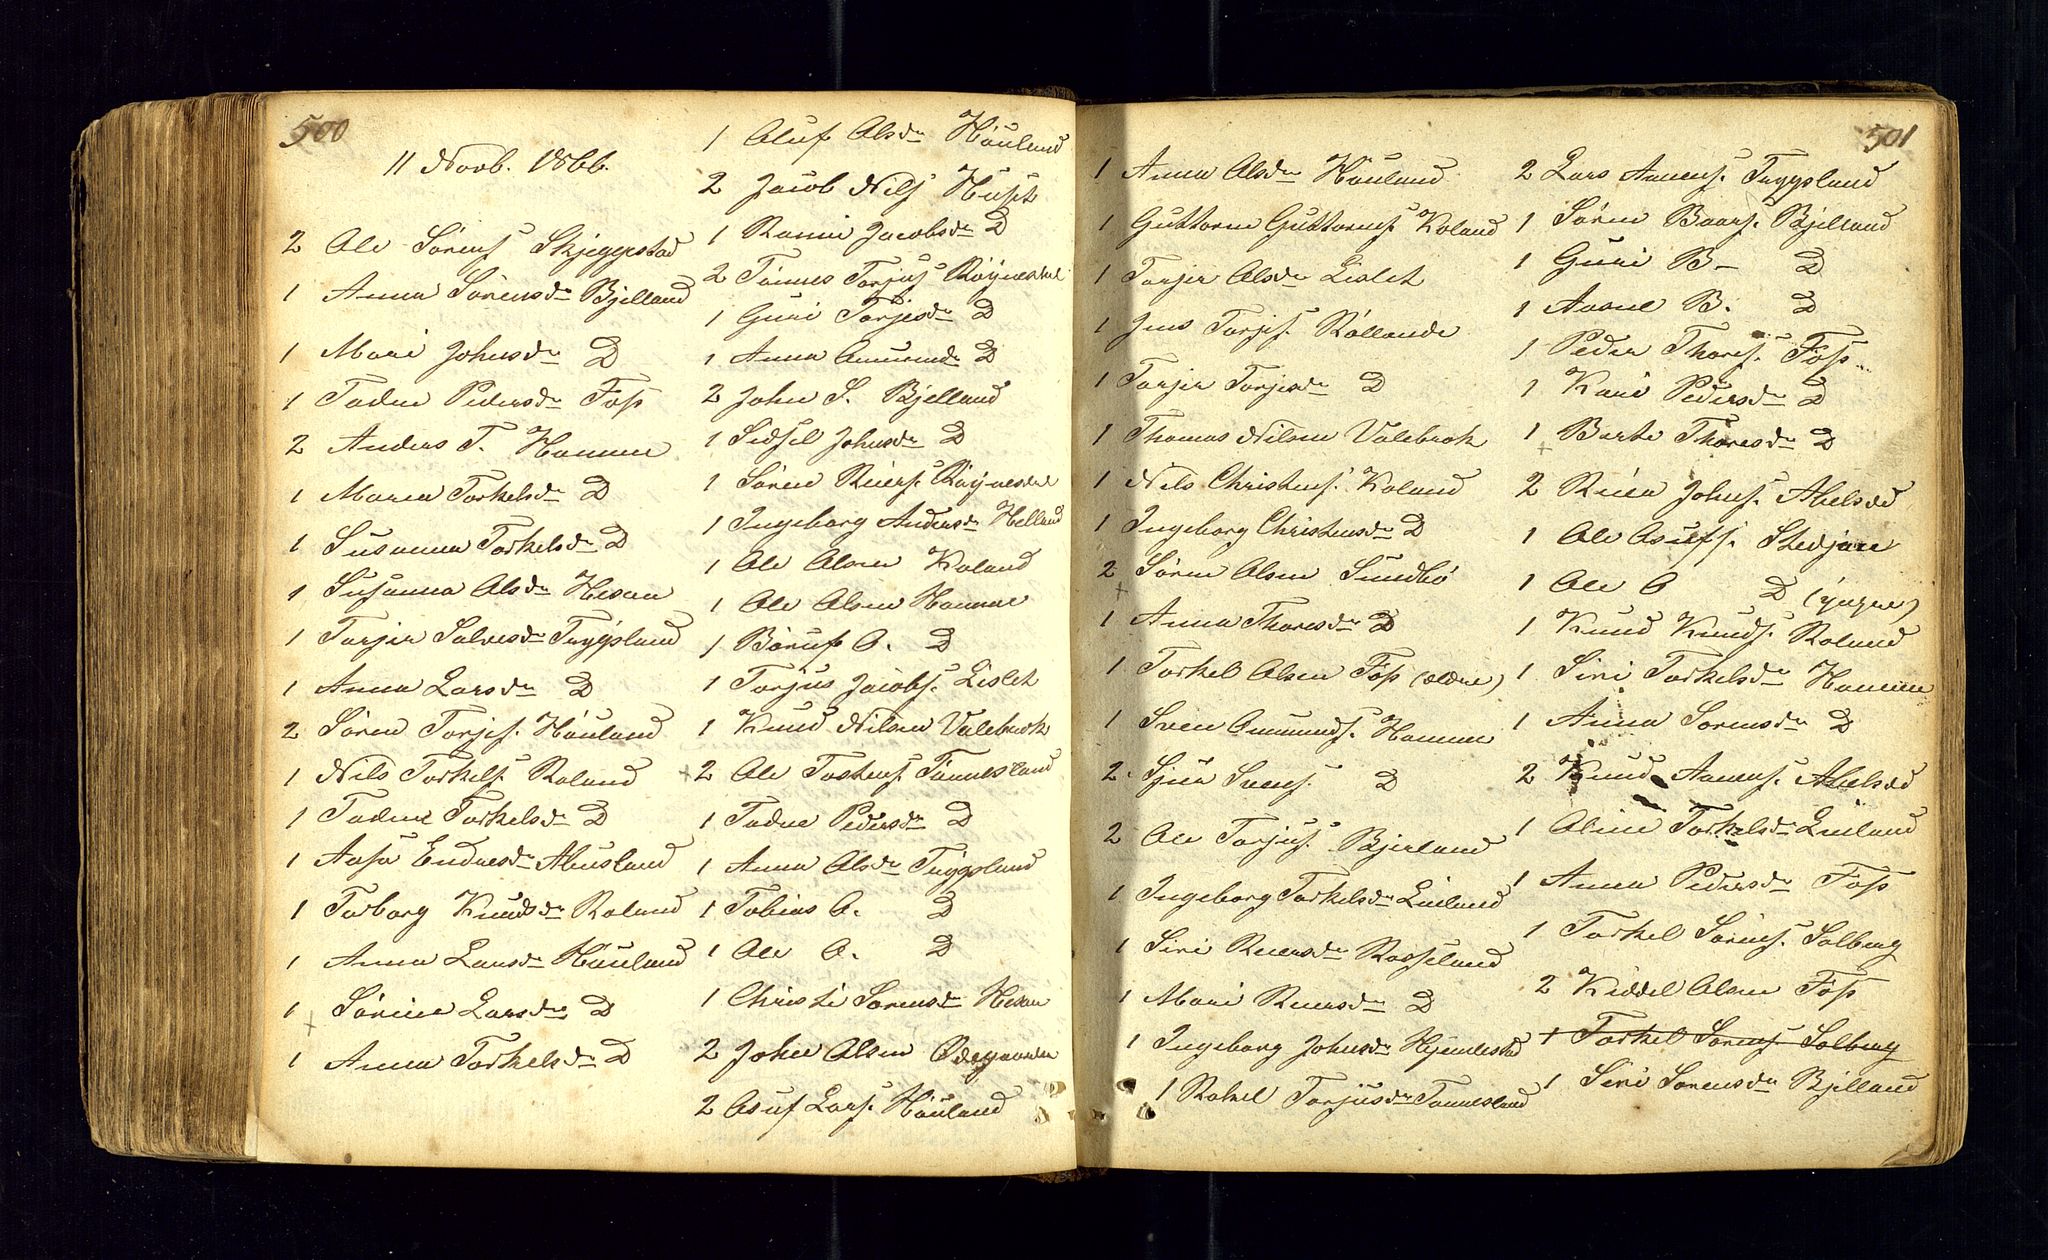 500
11 Novb. 1866.
2 Ole Sørens. Skjeggestad
1 Anna Sørensdr Bjelland
1 Mari Johnsdr D
1 Taden Pedersdr Foss
2 Anders T. Homme
1 Maren Torkelsdr D
1 Susanna Torkelsdr D
1 Susanna Olsdr Hesaa
1 Torjer Salvesdr Trygsland
1 Anna Larsdr D
2 Søren Torjes. Høuland
1 Nils Torkels. Roland
1 Tadne Torkelsdr D
1 Aase Endresdr Abusland
1 Torborg Knudsdr Roland
1 Anna Larsdr Høuland
1 Sørine Larsdr D
+
1 Anna Torkelsdr D
1 Oluf Olsdr Høuland
2 Jacob Nils. Huset
1 Rannei Jacobsdr D
2 Tønnes Torjus. Røynesdal
1 Guri Torjesdr D
1 Anna Omundsdr D
2 John S. Bjelland
1 Sidsel Johnsdr D
1 Søren Reiers. Røynesdal
1 Ingeborg Andersdr Helland
1 Ole Olsen Koland
1 Ole Olsen Homme
1 Børuf O. D
1 Torjus Jacobs. Lislet
1 Knud Nilsen Valebrok
+ 2 Ole Tostens. Tønnesland
1 Tadne Pedersdr D
1 Anna Olsdr Tryggsland
1 Tobias O. D
1 Ole O. D
1 Christi Sørensdr Hesaa
2 John Olsen Ødegaarden
2 Osuf Lars. Høuland
501
1 Anna Olsdr Høuland
1 Guttorm Guttorms. Koland
1 Torjer Olsdr Lislet
1 Jens Torjes. Røllande
1 Torjer Torjesdr D
1 Thomas Nilsen Valebrok
1 Nils Christens. Koland
1 Ingeborg Christensdr D
2 Søren Olsen Sundbø
+
1 Anna Thoresdr D
1 Torkel Olsen Foss (ældre)
1 Sven Ommunds. Homme
2 Sjur Svens. D
2 Ole Torjus. Bjerland
1 Ingeborg Torkelsdr Liuland
1 Siri Reiersdr Rosseland
1 Mari Reiersdr D
1 Ingeborg Johnsdr Hjemlestad
1 Rakel Torjusdr Tønnesland
2 Lars Anens. Tryggsland
1 Søren Baars. Bjelland
1 Guri B- D
1 Aasne B. D
1 Peder Thores. Foss
1 Kari Pedersdr D
1 Berte Thoresdr D
+
2 Reier Johns. Abelsed
1 Ole Osufs. Stedjan
1 Ole O D (yngre)
1 Knud Knuds. Roland
1 Siri Torkelsdr Homme
1 Anna Sørensdr D
2 Knud Anens. Abelsed
1 Oline Torkelsdr Liuland
1 Anna Pedersdr Foss
1 Torkel Sørens. Solberg
2 Kiddel Olsen Foss
1 Torkel Sørens. Solberg
1 Siri Sørensdr Bjelland